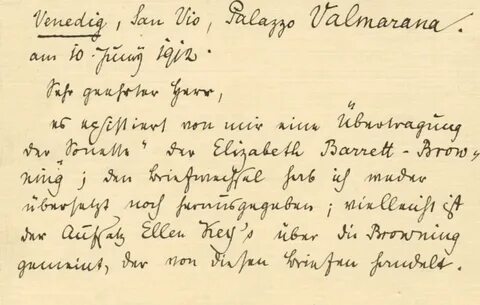 Venedig, San Vio, Palazzo Valmarana.
am 10. Juny 1912.
Sehr geehrter Herr,
es existiert von mir eine „Übertragung
der Sonette" der Elizabeth Barrett-Brow-
ning"; den Briefwechsel hab ich weder
übersetzt noch herausgegeben; vielleicht ist
der Aufsatz Ellen Key's über die Browning
gemeint, der von diesen Briefen handelt.